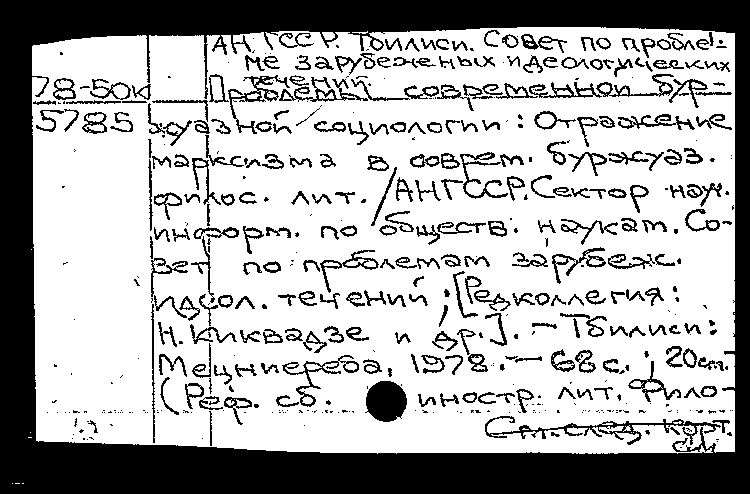 АН ГССР. Тбилиси. Совет по пробле-
ме зарубежных идеологических
течений
78-50к Проблемы современной бур-
5785 жуазной социологии: Отражение
марксизма в соврем. буржуаз.
филос. лит. / АН ГССР. Сектор науч.
информ. по обществ. наукам. Со-
вет по проблемам зарубеж.
идеол. течений; [Редколлегия:
Н. Киквадзе и др.]. – Тбилиси:
Мецниереба, 1978. – 68 с.; 20 см.
(Реф. сб. иностр. лит. Фило-
См. след. карт.